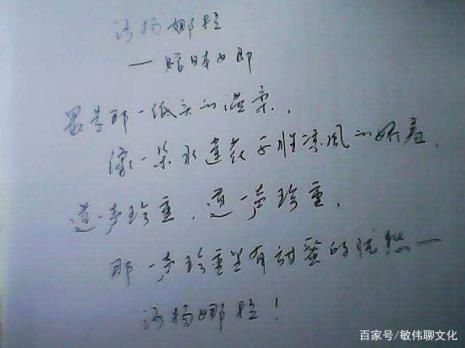 沙扬娜拉
—赠日本女郎
最是那一低头的温柔，
像一朵水莲花不胜凉风的娇羞，
道一声珍重，道一声珍重，
那一声珍重里有甜蜜的忧愁—
沙扬娜拉！
百家号/敏伟聊文化